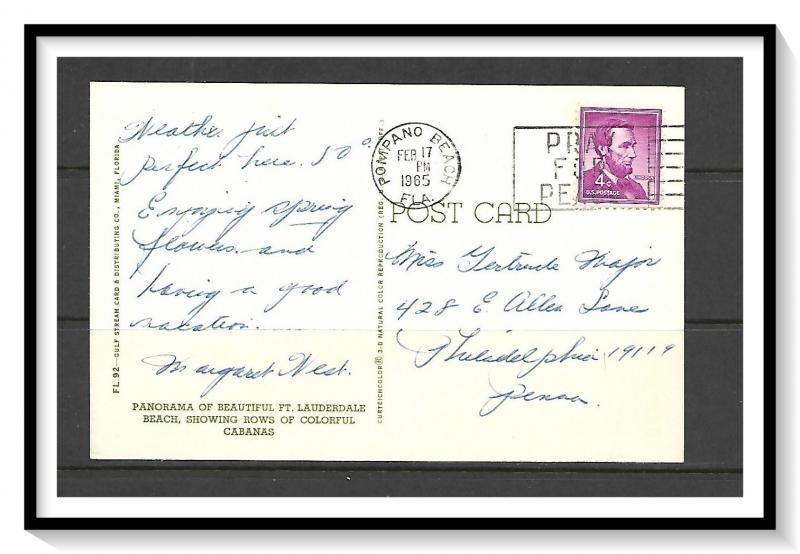 Weather just
perfect here. 50°
Enjoying spring
flowers and
having a good
vacation.
Margaret West.
PANORAMA OF BEAUTIFUL FT. LAUDERDALE
BEACH, SHOWING ROWS OF COLORFUL
CABANAS
FL.92—GULF STREAM CARD & DISTRIBUTING CO., MIAMI, FLORIDA
CURTEICHCOLOR® 3-D NATURAL COLOR REPRODUCTION (REG. U.S.A. PAT. OFF.)
POMPANO BEACH
FEB 17
PM
1965
FLA.
PRAY
FOR
PEACE
4¢
U.S. POSTAGE
POST CARD
Miss Gertrude Major
428 E. Allen Lane
Philadelphia 19119
Penna.